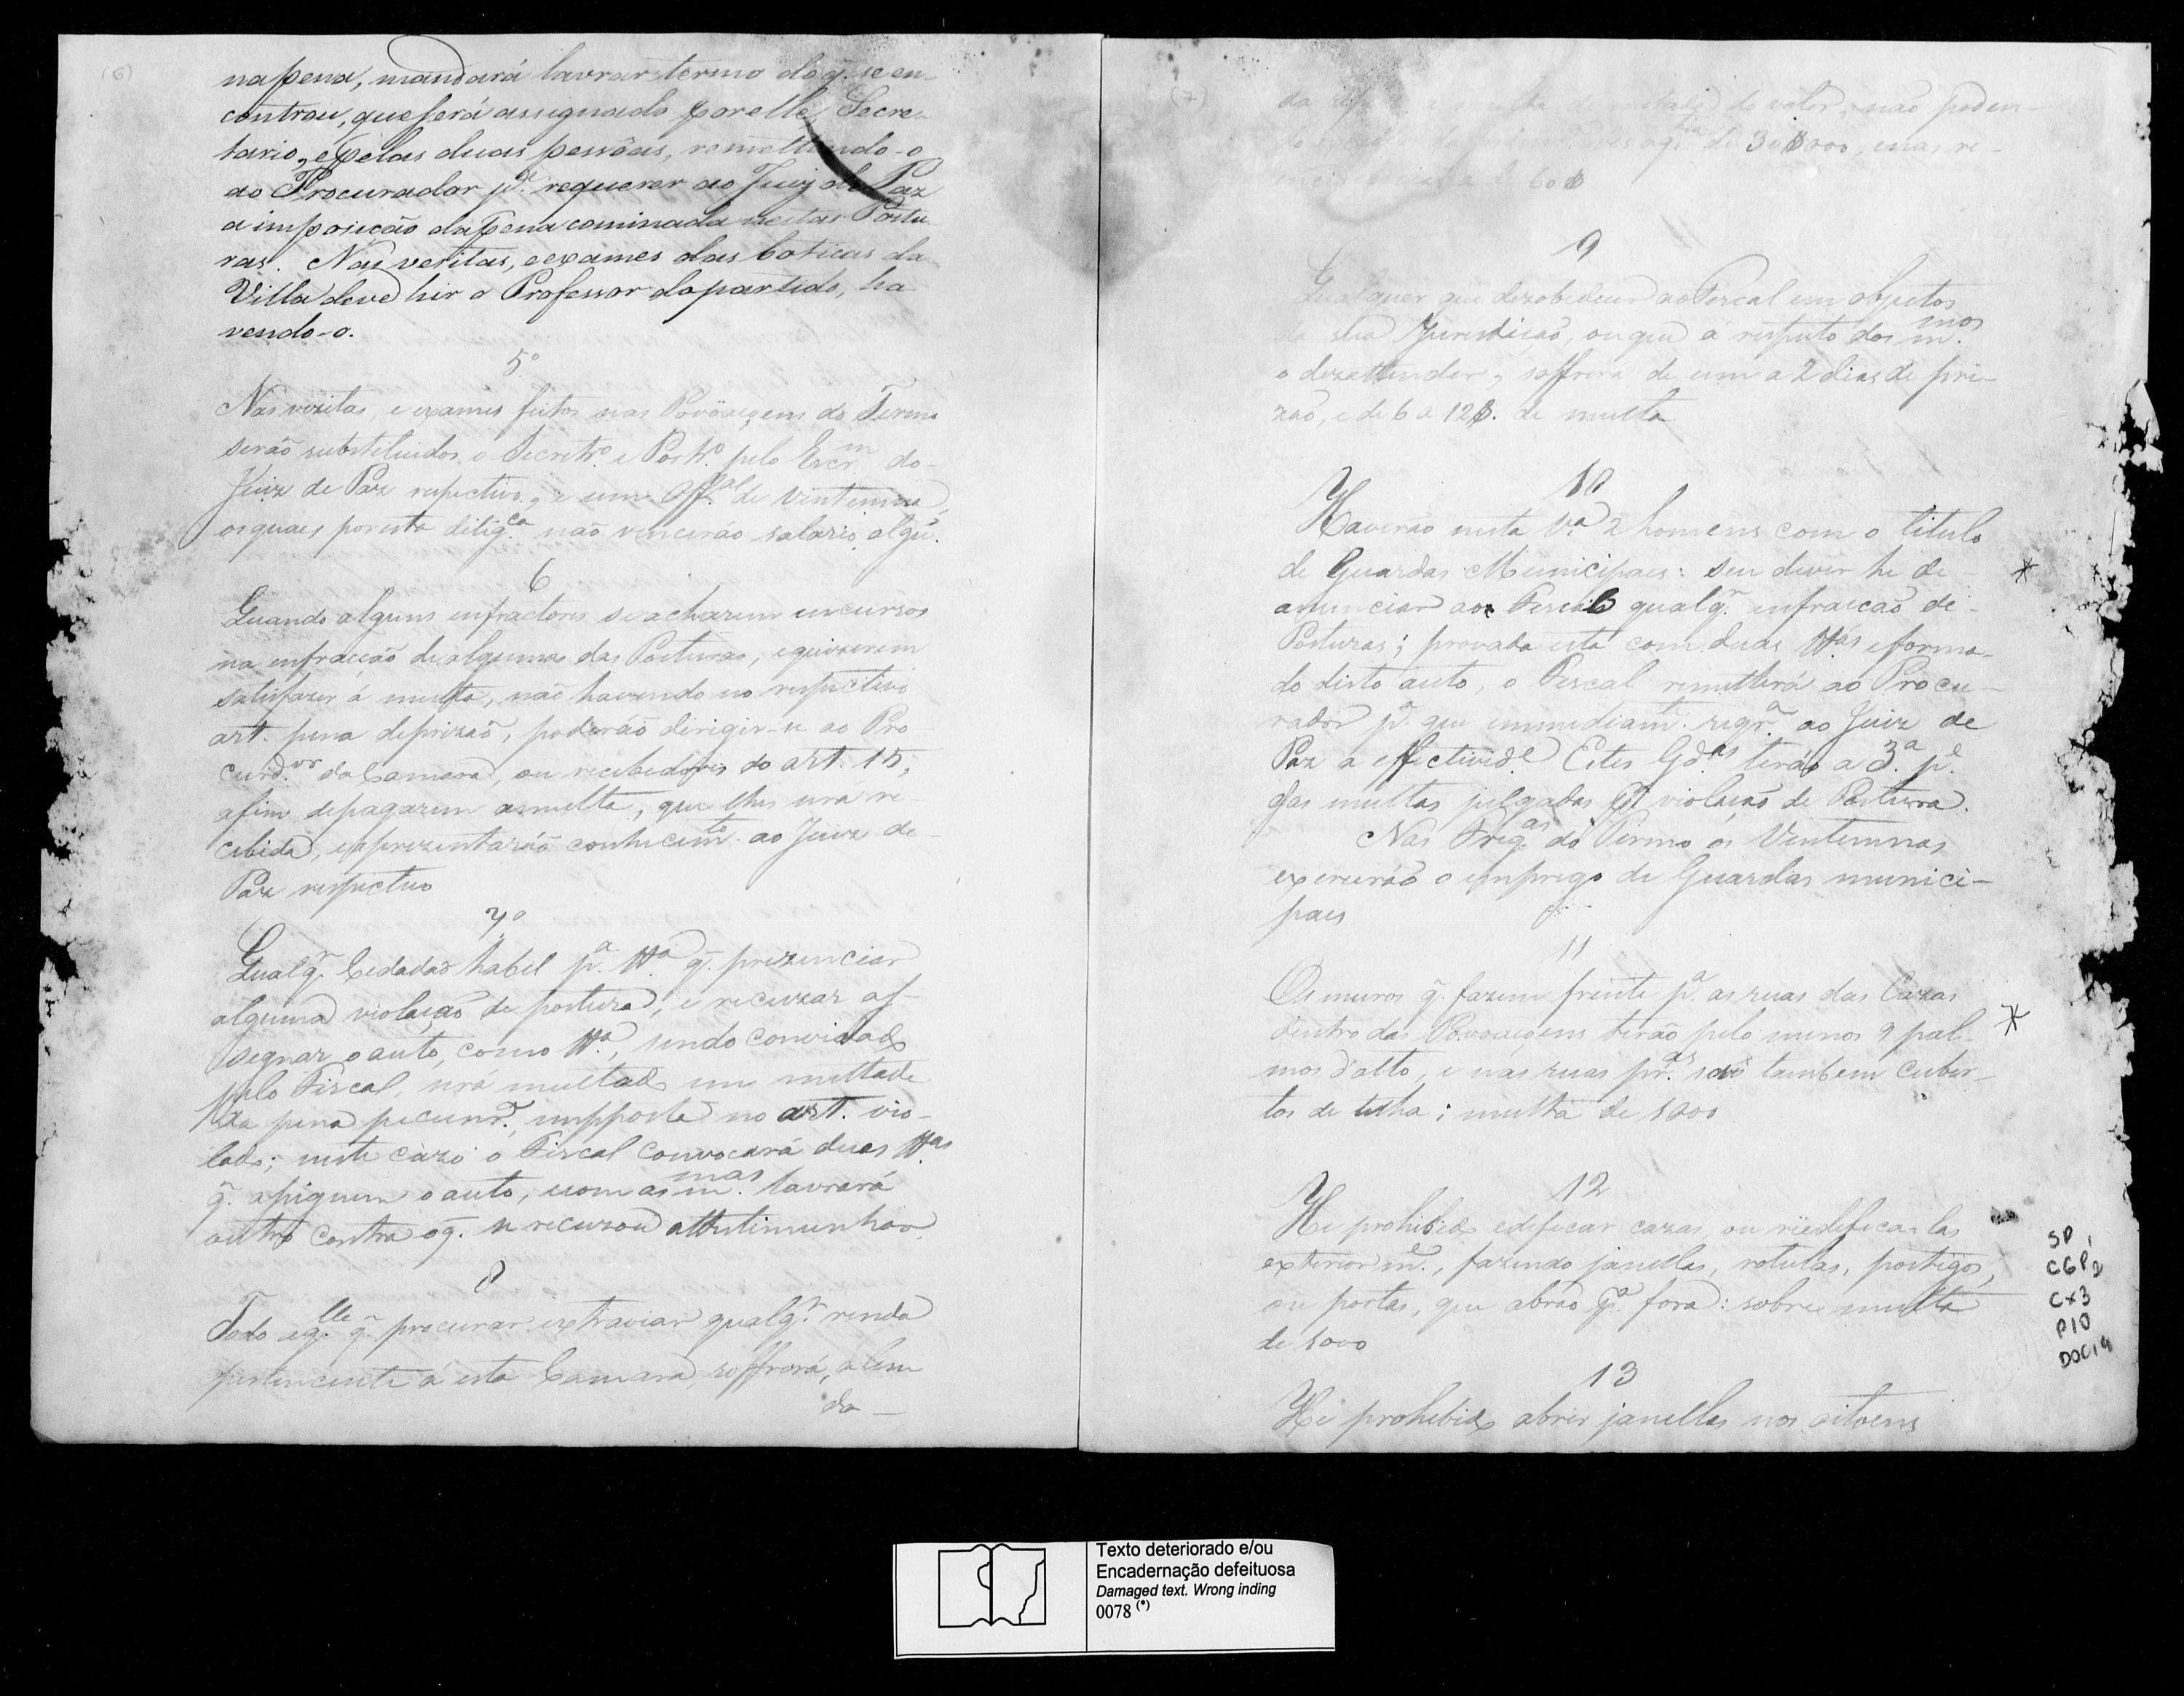 (6)
na pena, mandará lavrar termo do q̃. se en-
controu, que será assignado por elle, Secre-
tario, e pelas duas pessôas, remettendo-o
ao Procurador pª. requerer ao Juiz de Paz
a imposicão da pena cominada nestas Postu
ras. Nas vesitas, e exames das boticas da
Villa deve hir o Professor do partido, ha
vendo-o.
5º
Nas vezitas, e exames feitos nas Povöaçens do Termo
serão substituidos o Secretrº. e Portrº. pelo Escrm do-
Juiz de Paz respectivo, e um Offal. de Vintenna,
os quaes por esta diligca. não vencerão salario algũ.
6
Quando alguns enfractores se acharem encursos
na enfracção de algumas das Posturas, e quizerem
satisfazer á multa, não havendo no respectivo
art. pena de prizaõ, poderão dirigir-se ao Pro
curdor. da Camara, ou recebedores do art. 15,
afim de pagarem a multa, que lhes sera re-
cebida, e apprezentaráõ conhecimto. ao Juiz de-
Paz respectivo
7º
Qualqr. Cedadaõ habil pª. ttª. q̃. prezenciar
alguma violaçaõ de postura, e recuzar as-
segnar o auto, como ttª., sendo convidado
pelo Fiscal, será multado em mettade
da pena pecunrª. impposta no art. vio-
lado; neste cazo o Fiscal convocará duas ttas.
q̃. assignem o auto, e com as mmas. lavrará
outro contra o q̃. se recuzou a ttestimunhar.
8
Todo aqlle. q̃. procurar extraviar qualqr. renda
pertencente á esta Camara, soffrerá, alem
da —
(7)
da multa de metade do valor, não poden-
do de 30$000, e nas re-
de 60$
9
Qualquer que dezobedecer ao Fiscal em objectos
da sua Jurisdiçaõ, ou que a respeito dos mmos.
o dezattender, soffrera de um a 2 dias de pri-
zaõ, e de 6 a 12$. de multa
10
Haverão nesta Vª. 2 homens com o titulo
de Guardas Municipaes: seu dever he de- *
anunciar aos Fiscal qualqr. enfracçaõ de-
Posturas; provada esta com duas ttas. e forma-
do disto auto, o Fiscal remetterá ao Procu-
rador pª. que immediamte. reqrª. ao Juiz de
Paz a effectivide. Estes Gdas. terão a 3ª. pe.
das multas julgadas pr. violaçaõ de Postura.
Nas Fregas. do Termo os Vintennas
exercerão o emprego de Guardas munici-
paes
11
Os muros q̃. fazem frente pª. as ruas das Cazas
dentro das Povoaçens terão pelo menos 9 pal- *
mos d'alto, e nas ruas pras. serão tambem Cuber-
tos de telha: multa de 1000
12
He prohibido edeficar cazas, ou reedefica-las
exteriorme., fazendo janellas, rotulas, postigos,
ou portas, que abrão pª. fora: sobre multa
de 1000
13
He prohibido abrir janellas nos oitoens
SP1
CGP2
CX3
P10
DOC19
Texto deteriorado e/ou
Encadernação defeituosa
Damaged text. Wrong inding
0078 (*)